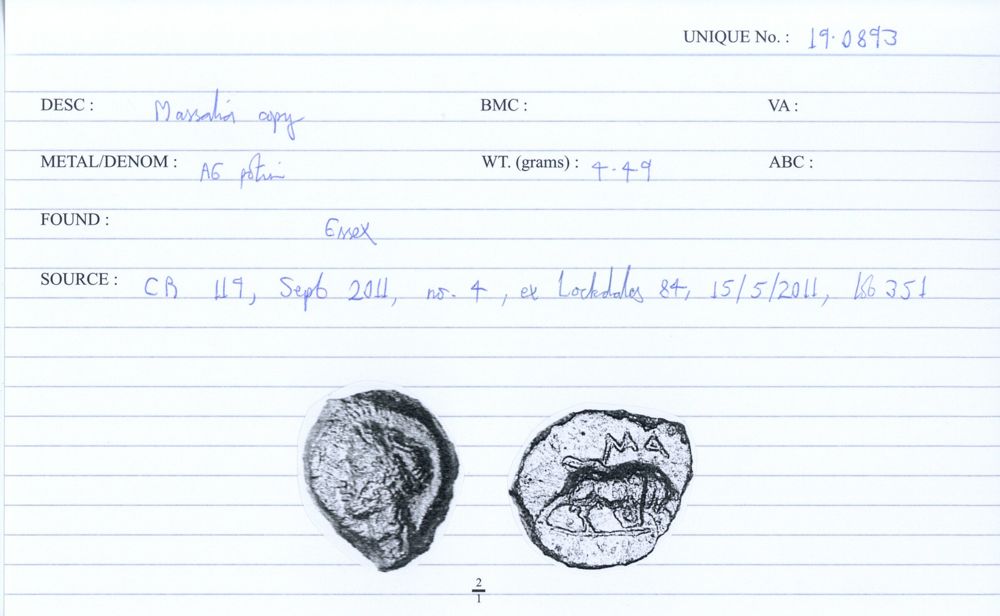 UNIQUE No. : 19.0893
DESC : Massalia copy BMC : VA :
METAL/DENOM : AE potin WT. (grams) : 4.49 ABC :
FOUND : Essex
SOURCE : CR 119, Sept 2011, no. 4, ex Lockdales 84, 15/5/2011, lot 351
MA
2
1